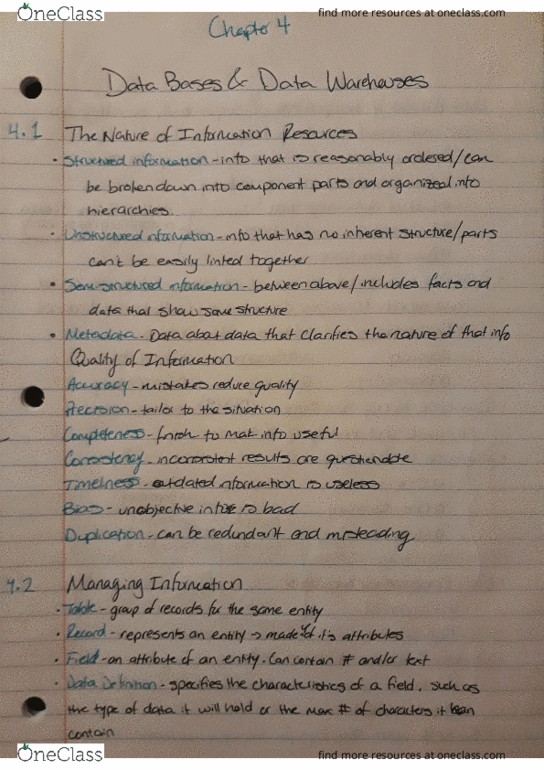 OneClass
find more resources at oneclass.com
Chapter 4
Data Bases & Data Warehouses
4.1 The Nature of Information Resources
• Structured information - info that is reasonably ordered/can
be broken down into component parts and organized into
hierarchies.
• Unstructured information - info that has no inherent structure/parts
can't be easily linked together
• Semi-structured information - between above/includes facts and
data that show some structure
• Metadata - Data about data that clarifies the nature of that info
Quality of Information
Accuracy - mistakes reduce quality
Precision - tailor to the situation
Completeness - to make info useful
Consistency - inconsistent results are questionable
Timeliness - outdated information is useless
Bias - unobjective info is bad
Duplication - can be redundant and misleading
4.2 Managing Information
• Table - group of records for the same entity
• Record - represents an entity → made of it's attributes
• Field - an attribute of an entity. Can contain # and/or text
• Data Definition - specifies the characteristics of a field, such as
the type of data it will hold or the max # of characters it can
contain
OneClass
find more resources at oneclass.com